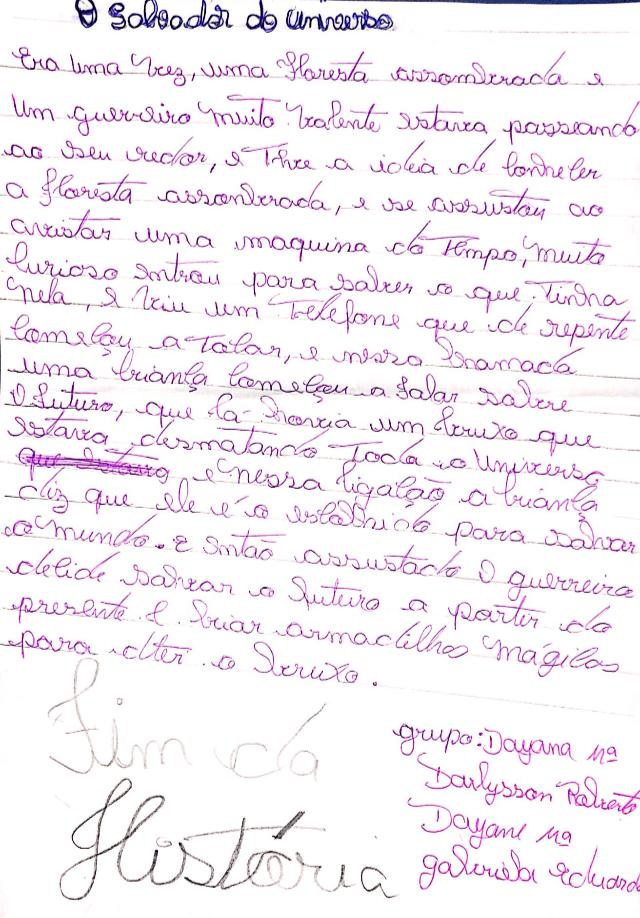 O Salvador do Universo
Era uma vez, uma floresta assombrada e
um guerreiro muito valente estava passeando
ao seu redor, e teve a ideia de conhecer
a floresta assombrada, e se assustou ao
avistar uma maquina do tempo, muito
curioso entrou para saber o que tinha
nela, e viu um telefone que de repente
começou a tocar, e nessa chamada
uma criança começou a falar sobre
o futuro, que la havia um bruxo que
estava desmatando todo o universo
e nessa ligação a criança
diz que ele é o escolhido para salvar
o mundo. E então assustado o guerreiro
decide salvar o futuro a partir do
presente. E criar armadilhas mágicas
para deter o bruxo.
Fim da
História
grupo: Dayana Mª
Darlysson Roberto
Dayane Mª
gabriela Eduarda